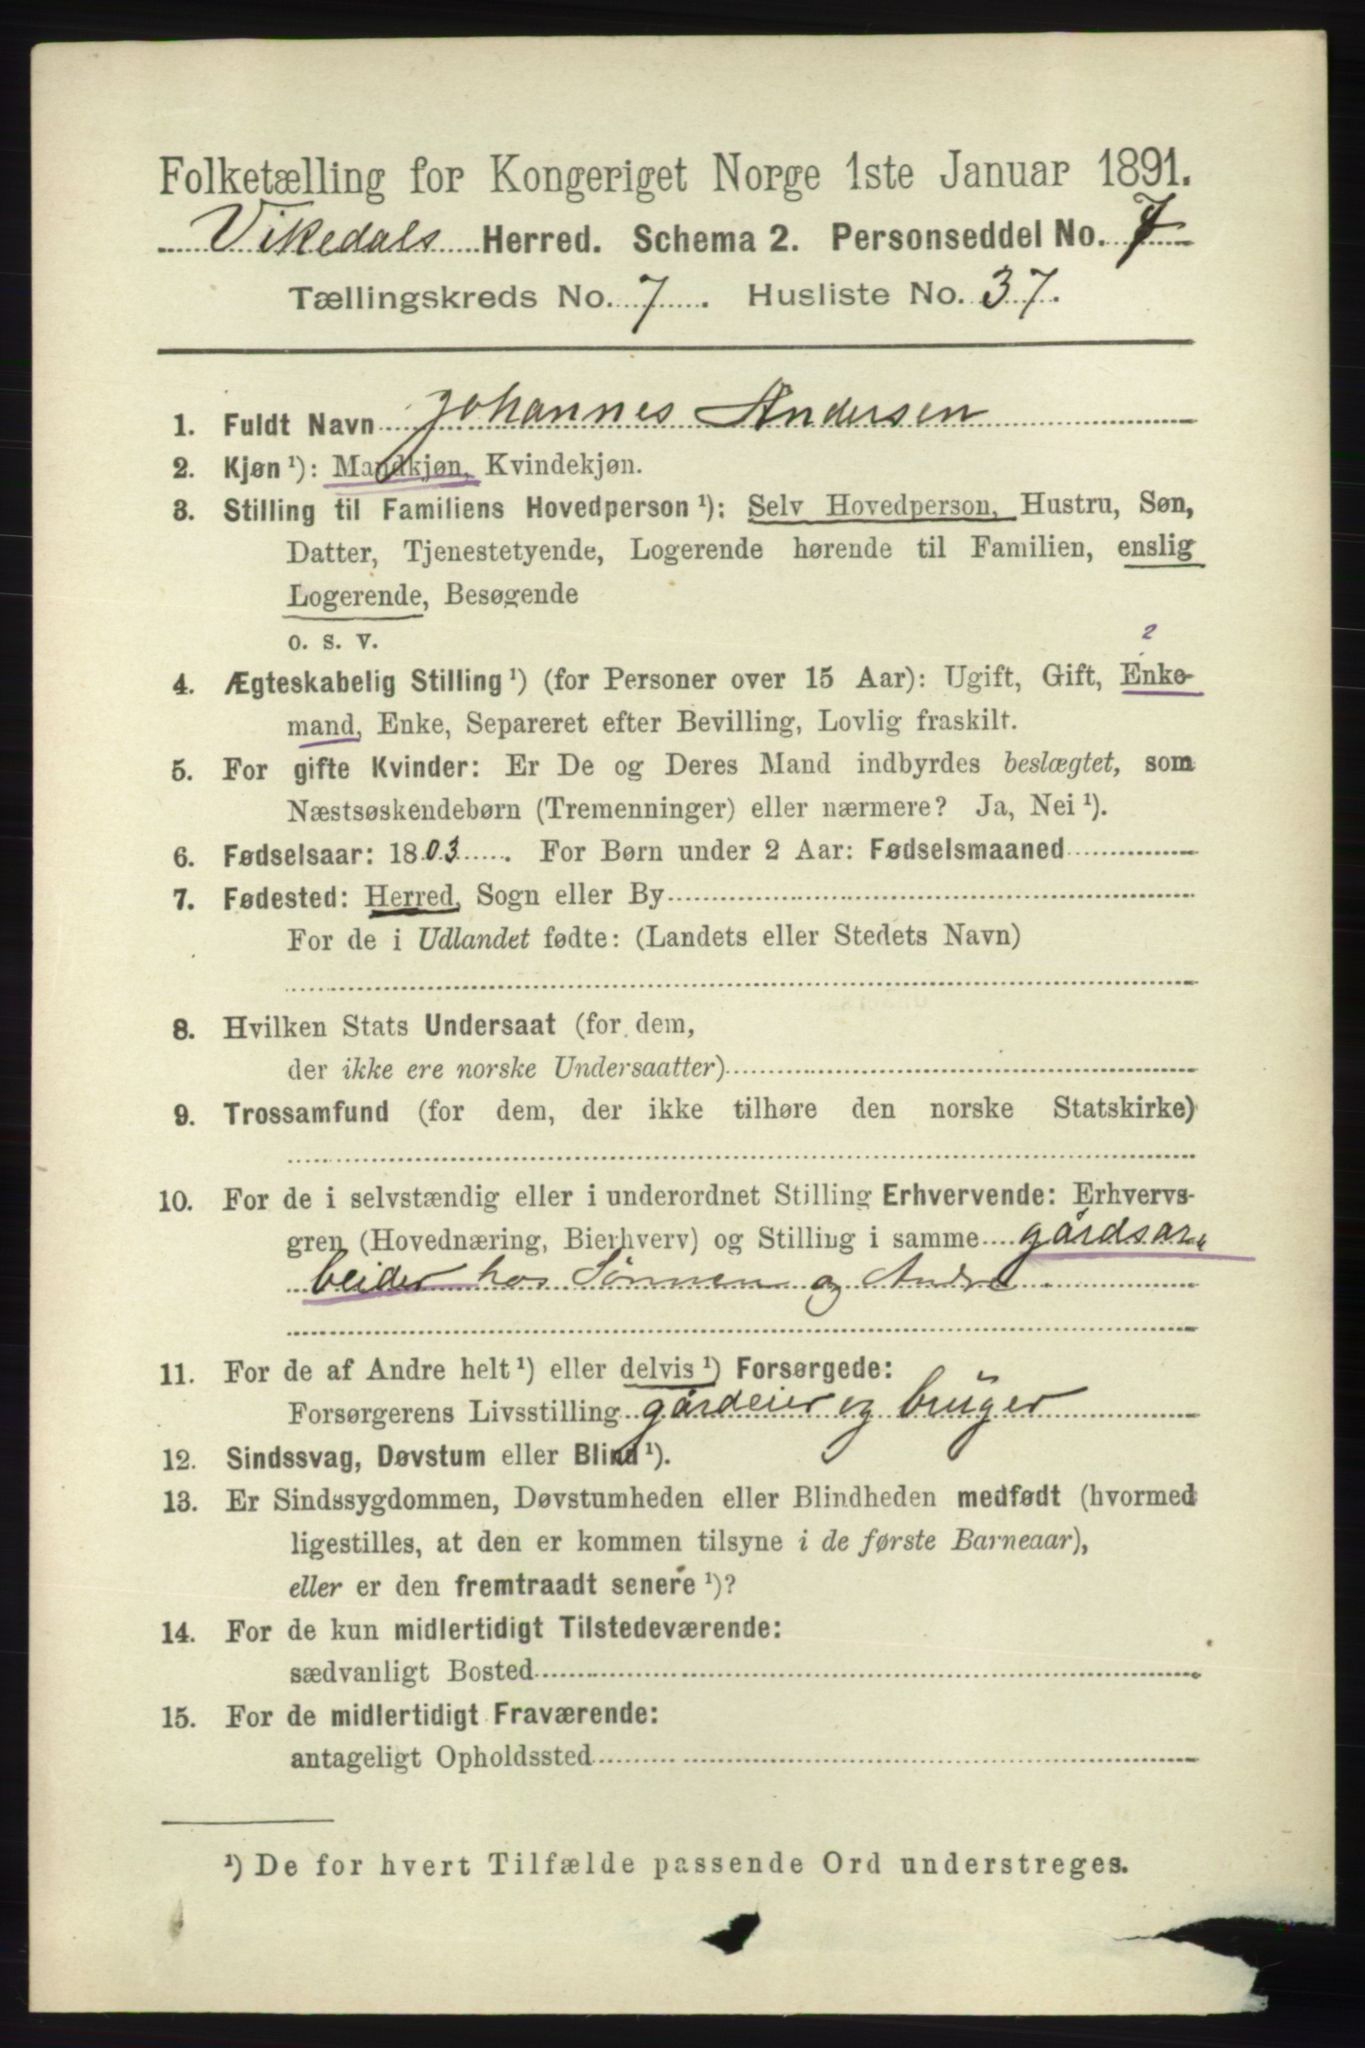 Folketælling for Kongeriget Norge 1ste Januar 1891.
Vikedals Herred. Schema 2. Personseddel No. 7
Tællingskreds No. 7. Husliste No. 37.
1. Fuldt Navn Johannes Andersen
2. Kjøn¹): Mandkjøn, Kvindekjøn.
3. Stilling til Familiens Hovedperson¹): Selv Hovedperson, Hustru, Søn,
Datter, Tjenestetyende, Logerende hørende til Familien, enslig
Logerende, Besøgende
o. s. v.
2
4. Ægteskabelig Stilling¹) (for Personer over 15 Aar): Ugift, Gift, Enke-
mand, Enke, Separeret efter Bevilling, Lovlig fraskilt.
5. For gifte Kvinder: Er De og Deres Mand indbyrdes beslægtet, som
Næstsøskendebørn (Tremenninger) eller nærmere? Ja, Nei¹).
6. Fødselsaar: 1803. For Børn under 2 Aar: Fødselsmaaned
7. Fødested: Herred, Sogn eller By
For de i Udlandet fødte: (Landets eller Stedets Navn)
8. Hvilken Stats Undersaat (for dem,
der ikke ere norske Undersaatter)
9. Trossamfund (for dem, der ikke tilhøre den norske Statskirke)
10. For de i selvstændig eller i underordnet Stilling Erhvervende: Erhvervs-
gren (Hovednæring, Bierhverv) og Stilling i samme gårdsar„
beider hos Sønnen og Andre
11. For de af Andre helt¹) eller delvis¹) Forsørgede:
Forsørgerens Livsstilling gårdeier og bruger
12. Sindssvag, Døvstum eller Blind¹).
13. Er Sindssygdommen, Døvstumheden eller Blindheden medfødt (hvormed
ligestilles, at den er kommen tilsyne i de første Barneaar),
eller er den fremtraadt senere¹)?
14. For de kun midlertidigt Tilstedeværende:
sædvanligt Bosted
15. For de midlertidigt Fraværende:
antageligt Opholdssted
¹) De for hvert Tilfælde passende Ord understreges.